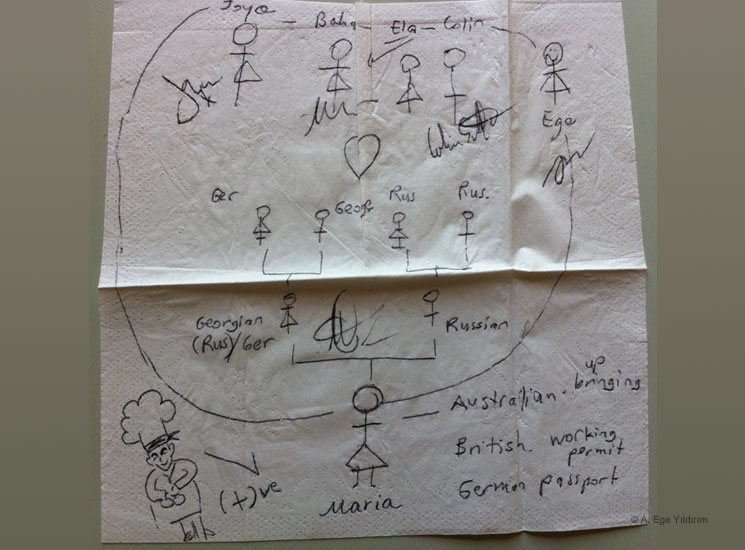 Joya – Baha – Ela – Colin –
Ege
Ger Georg Rus Rus.
Georgian
(Rus)/Ger
Russian
Australian - up
bringing
British working
permit
German passport
(+)ve
Maria
© A. Ege Yıldırım